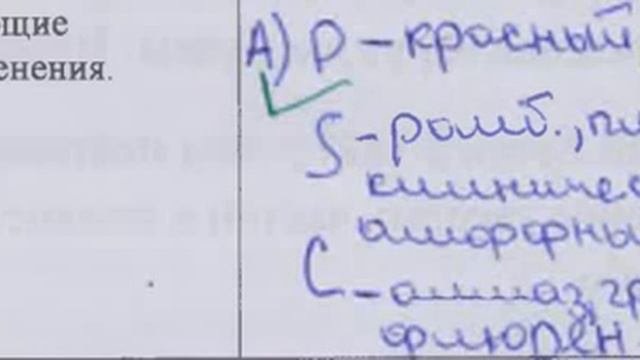 ющие
енения.
А) Р – красный
S – ромб., пл
клиничес
аморфны
С – алмаз, гр
флюрен